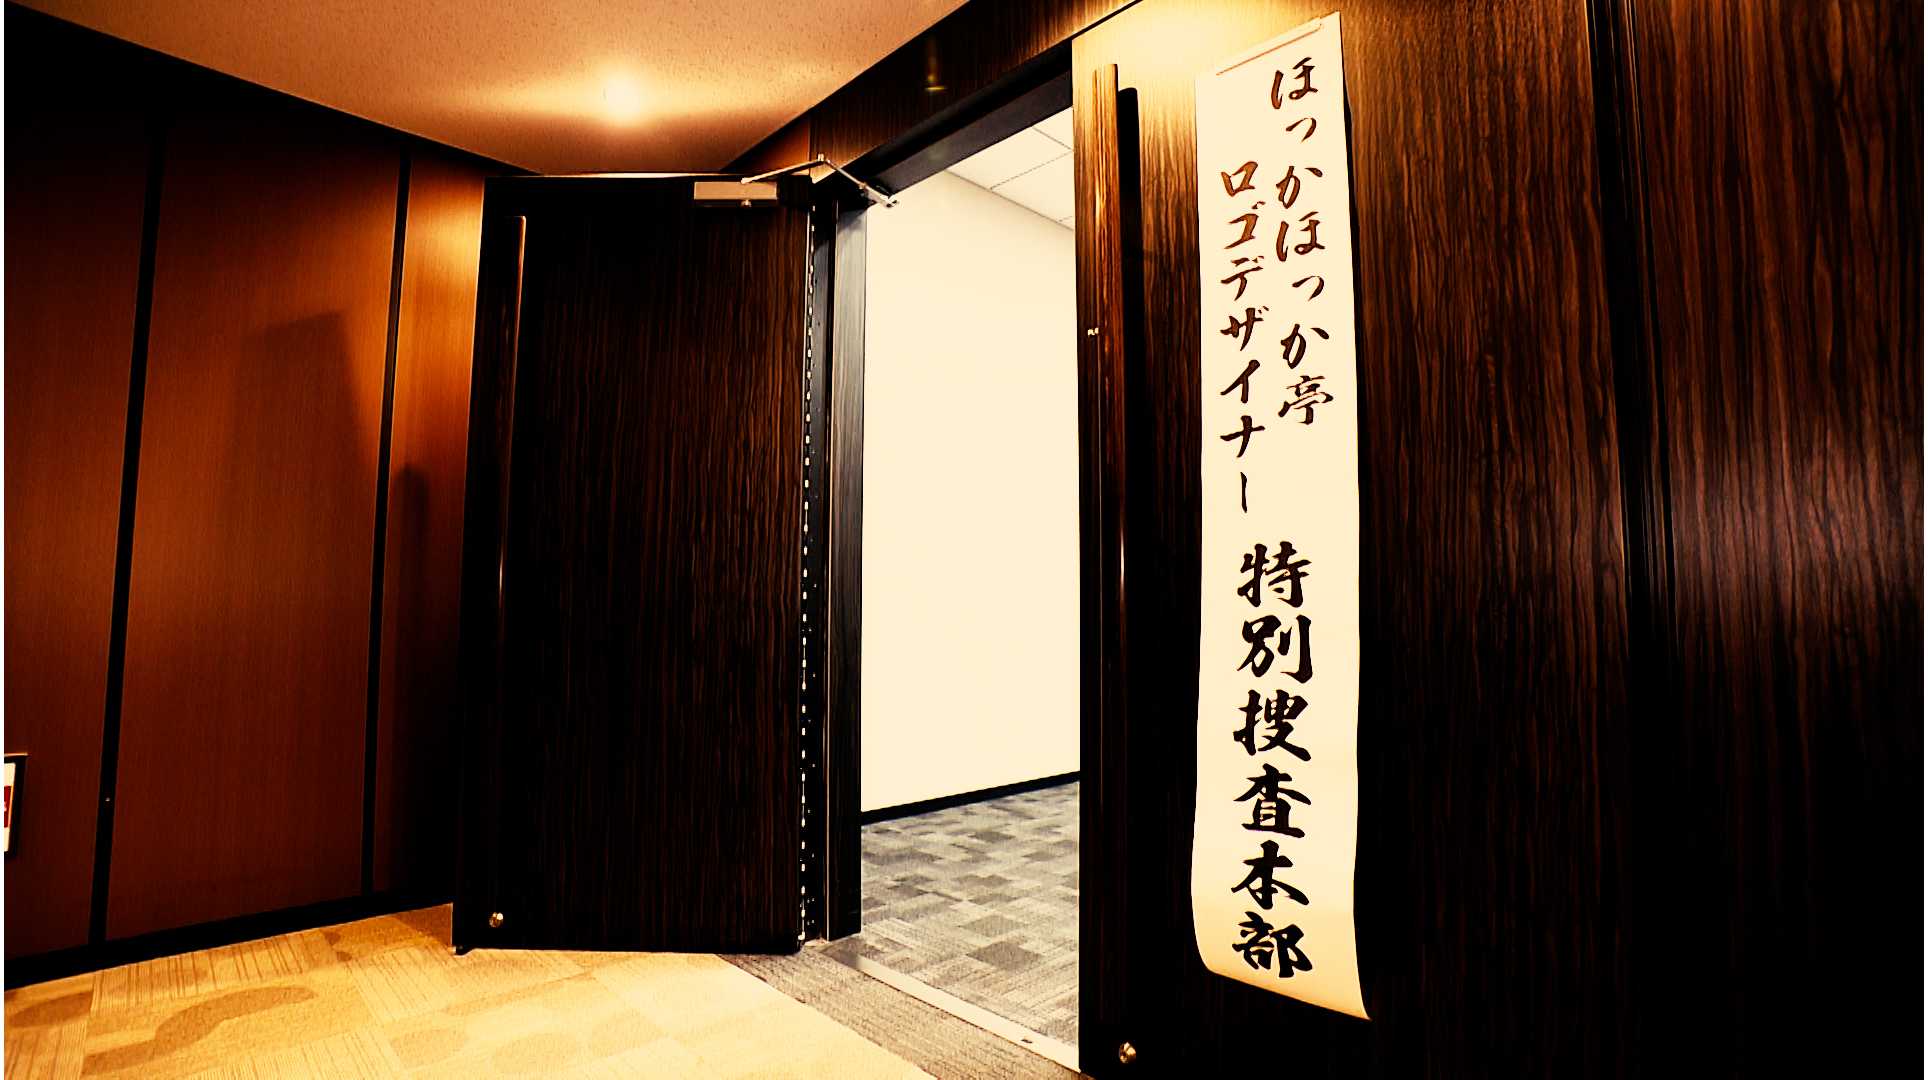 ほっかほっか亭
ロゴデザイナー
特別捜査本部